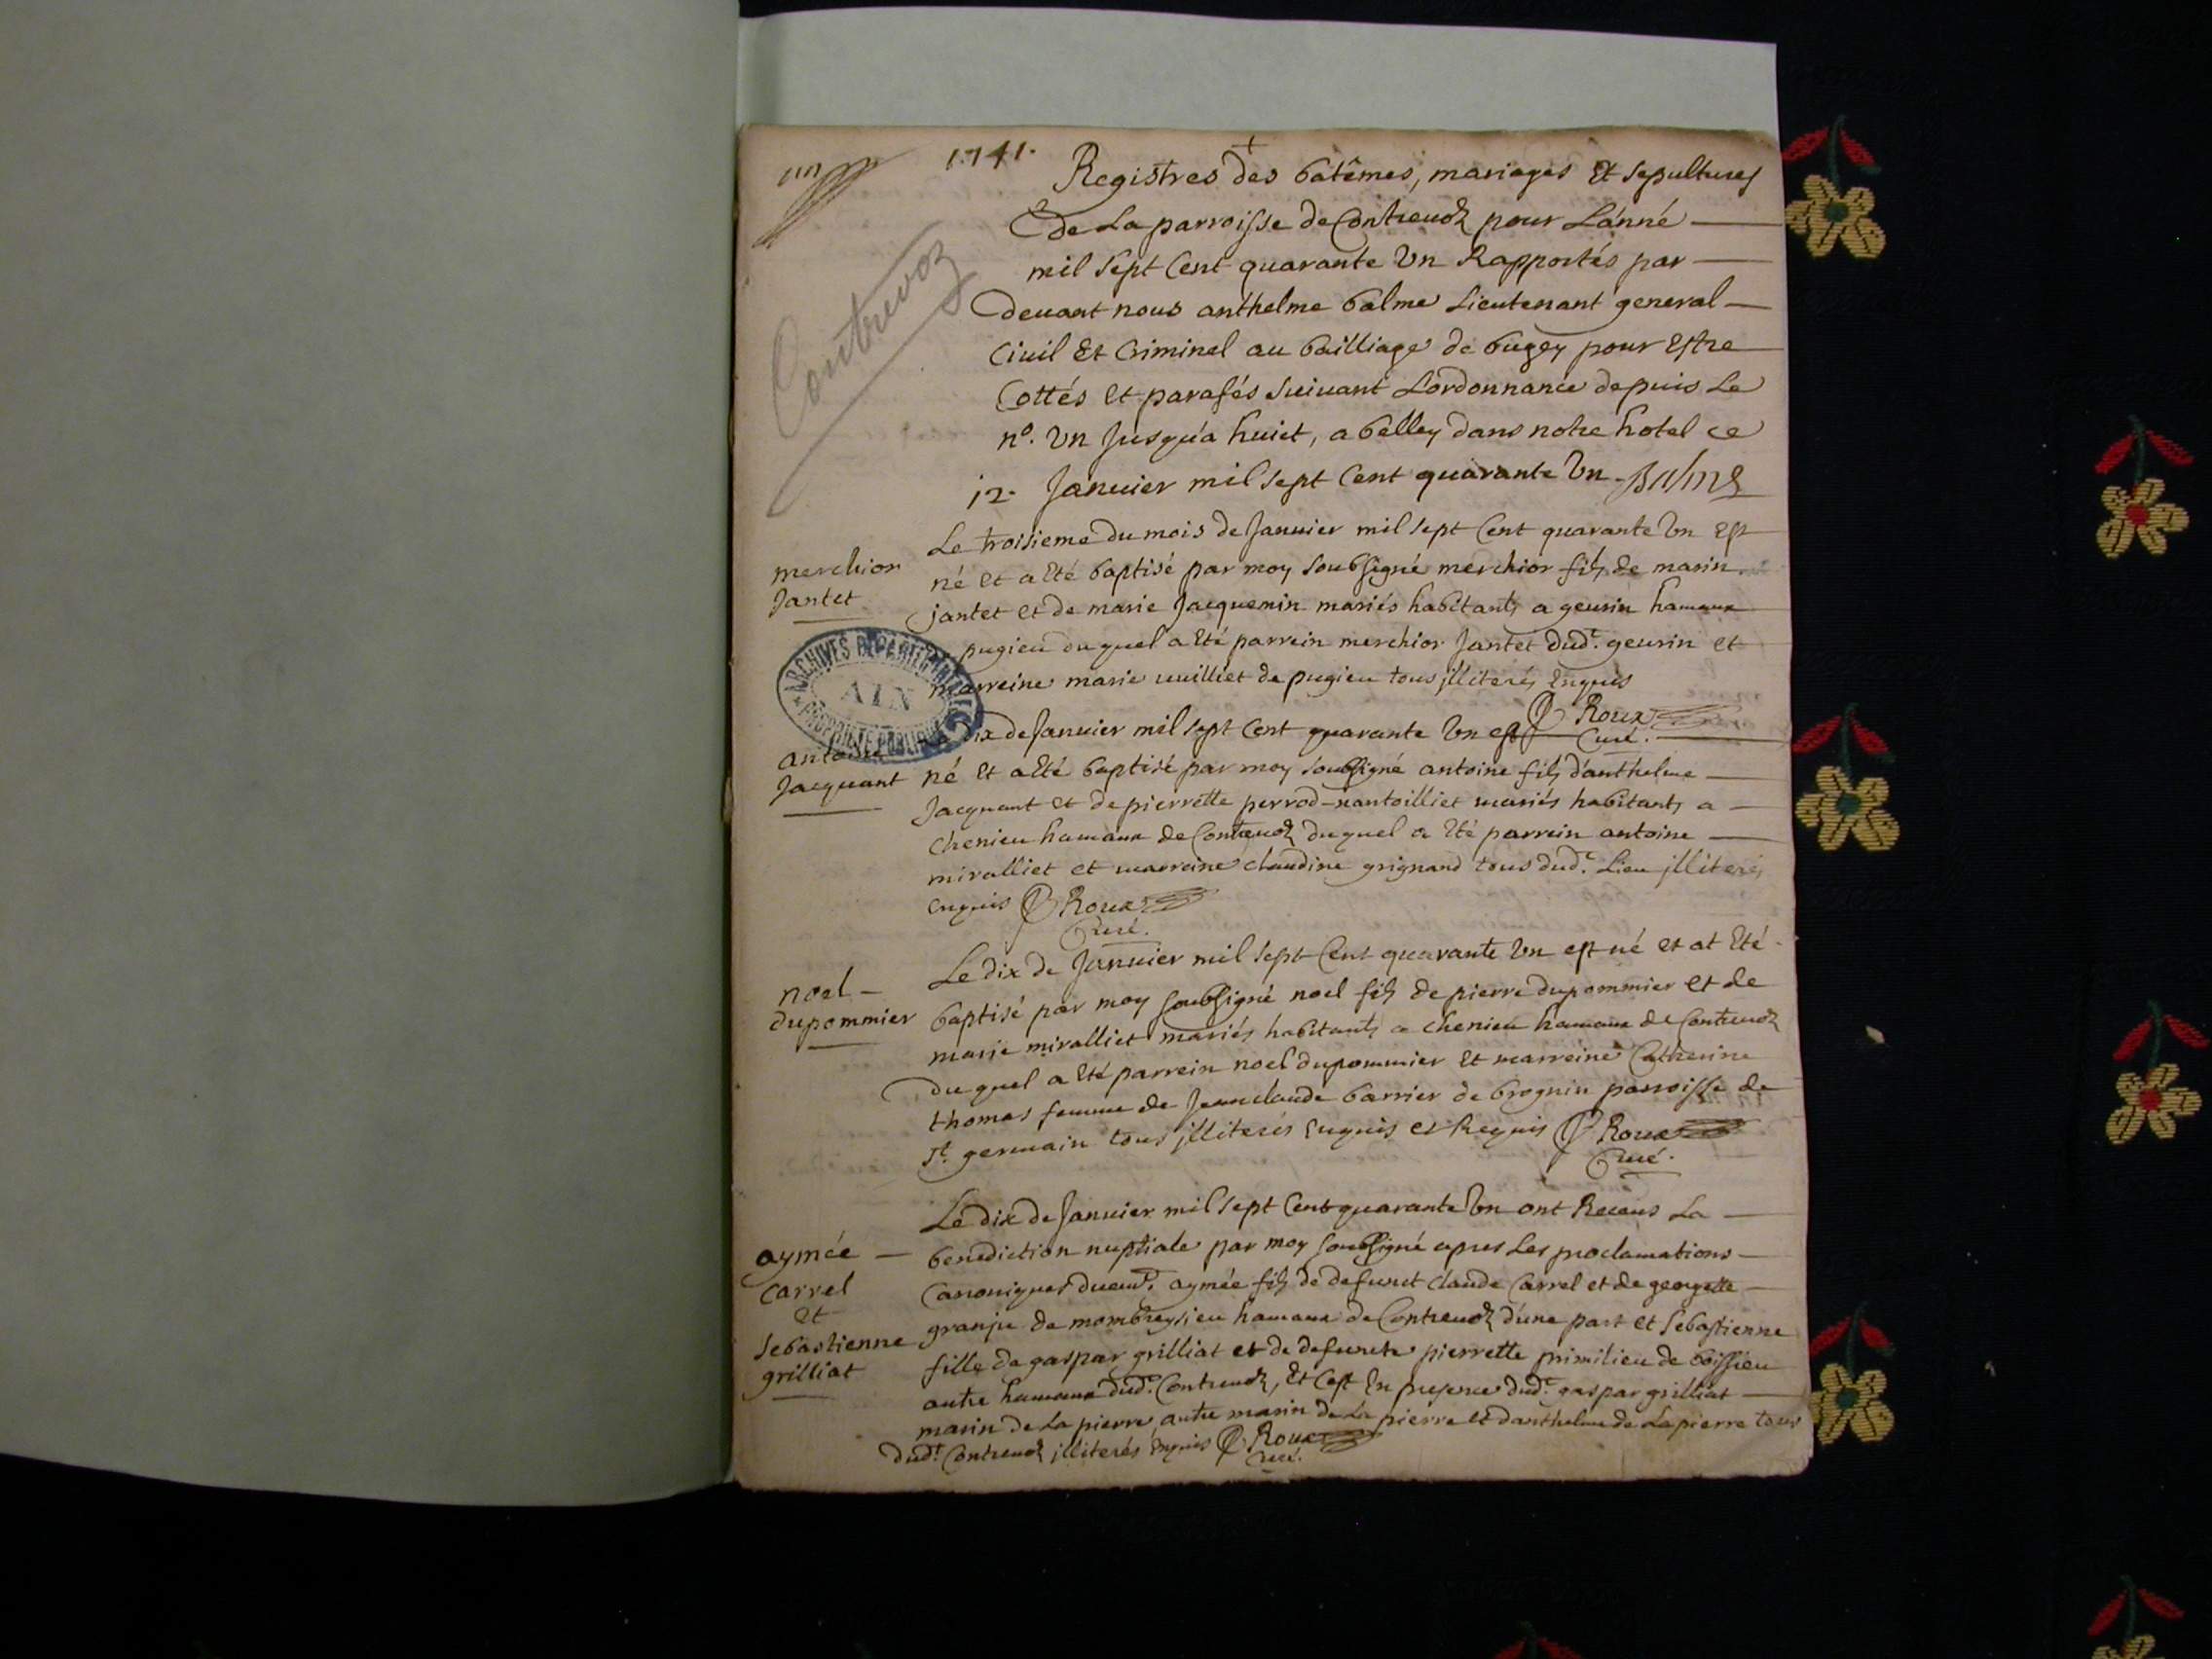 1741.
Registres des batêmes, mariages Et sepultures
de La parroisse de Contreuoz pour L'anné
mil sept Cent quarante Un Rapportés par
deuant nous anthelme balme Lieutenant general
Ciuil Et Criminel au bailliage de bugey pour Estre
Cottés et parafés suiuant L'ordonnance depuis Le
n°. Un Jusqu'a huict, a belley dans notre hotel ce
12. Januier mil sept Cent quarante Un Balme
Contrevoz
merchior
Jantet
Le troisieme du mois de Januier mil sept Cent quarante Un Est
né et a Eté baptisé par moy soubsigné merchior fils de marin
jantet et de marie Jacquemin mariés habitants a geurin hamaux
pugieu duquel a Eté parrein merchior Jantet dud.t geurin et
marreine marie uuilliet de pugieu tous illiterés Enquis
Roux
Curé.
ARCHIVES DEPARTEMENTALES
AIN
PROPRIETE PUBLIQUE
antoine
Jacquant
dix de Januier mil sept Cent quarante Un est
né Et a Eté baptisé par moy soubsigné antoine fils d'anthelme
Jacquant et de pierrette perrod-nantoilliet mariés habitants a
chenieu hamaux de Contreuoz duquel a Eté parrein antoine
miralliet et marreine claudine grignand tous dud.t Lieu illiterés
enquis Roux
Curé.
noel
dupommier
Le dix de Januier mil sept Cent quarante Un est né et at Eté
baptisé par moy soubsigné noel fils de pierre dupommier et de
marie miralliet mariés habitants a chenieu hamaux de Contreuoz
duquel a Eté parrein noel dupommier Et marreine Catherine
thomas femme de Jeanclaude barrier de brognin parroisse de
St. germain tous illiterés Enquis et Requis Roux
Curé.
aymée
Carrel
et
Sebastienne
grilliat
Le dix de Januier mil sept Cent quarante Un ont Receus La
benediction nuptiale par moy soubsigné apres Les proclamations
Canoniques aymée fils de defunct Claude Carrel et de georgette
granju de mombreysieu hamaux de Contreuoz d'une part et Sebastienne
fille de gaspar grilliat et de defuncte pierrette primilieu de boissieu
autre hamaux dud.t Contreuoz, Et Cest En presence dud.t gaspar grilliat
marin de La pierre autre marin de La pierre et danthelme de Lapierre tous
dud.t Contreuoz illiterés Enquis Roux
Curé.